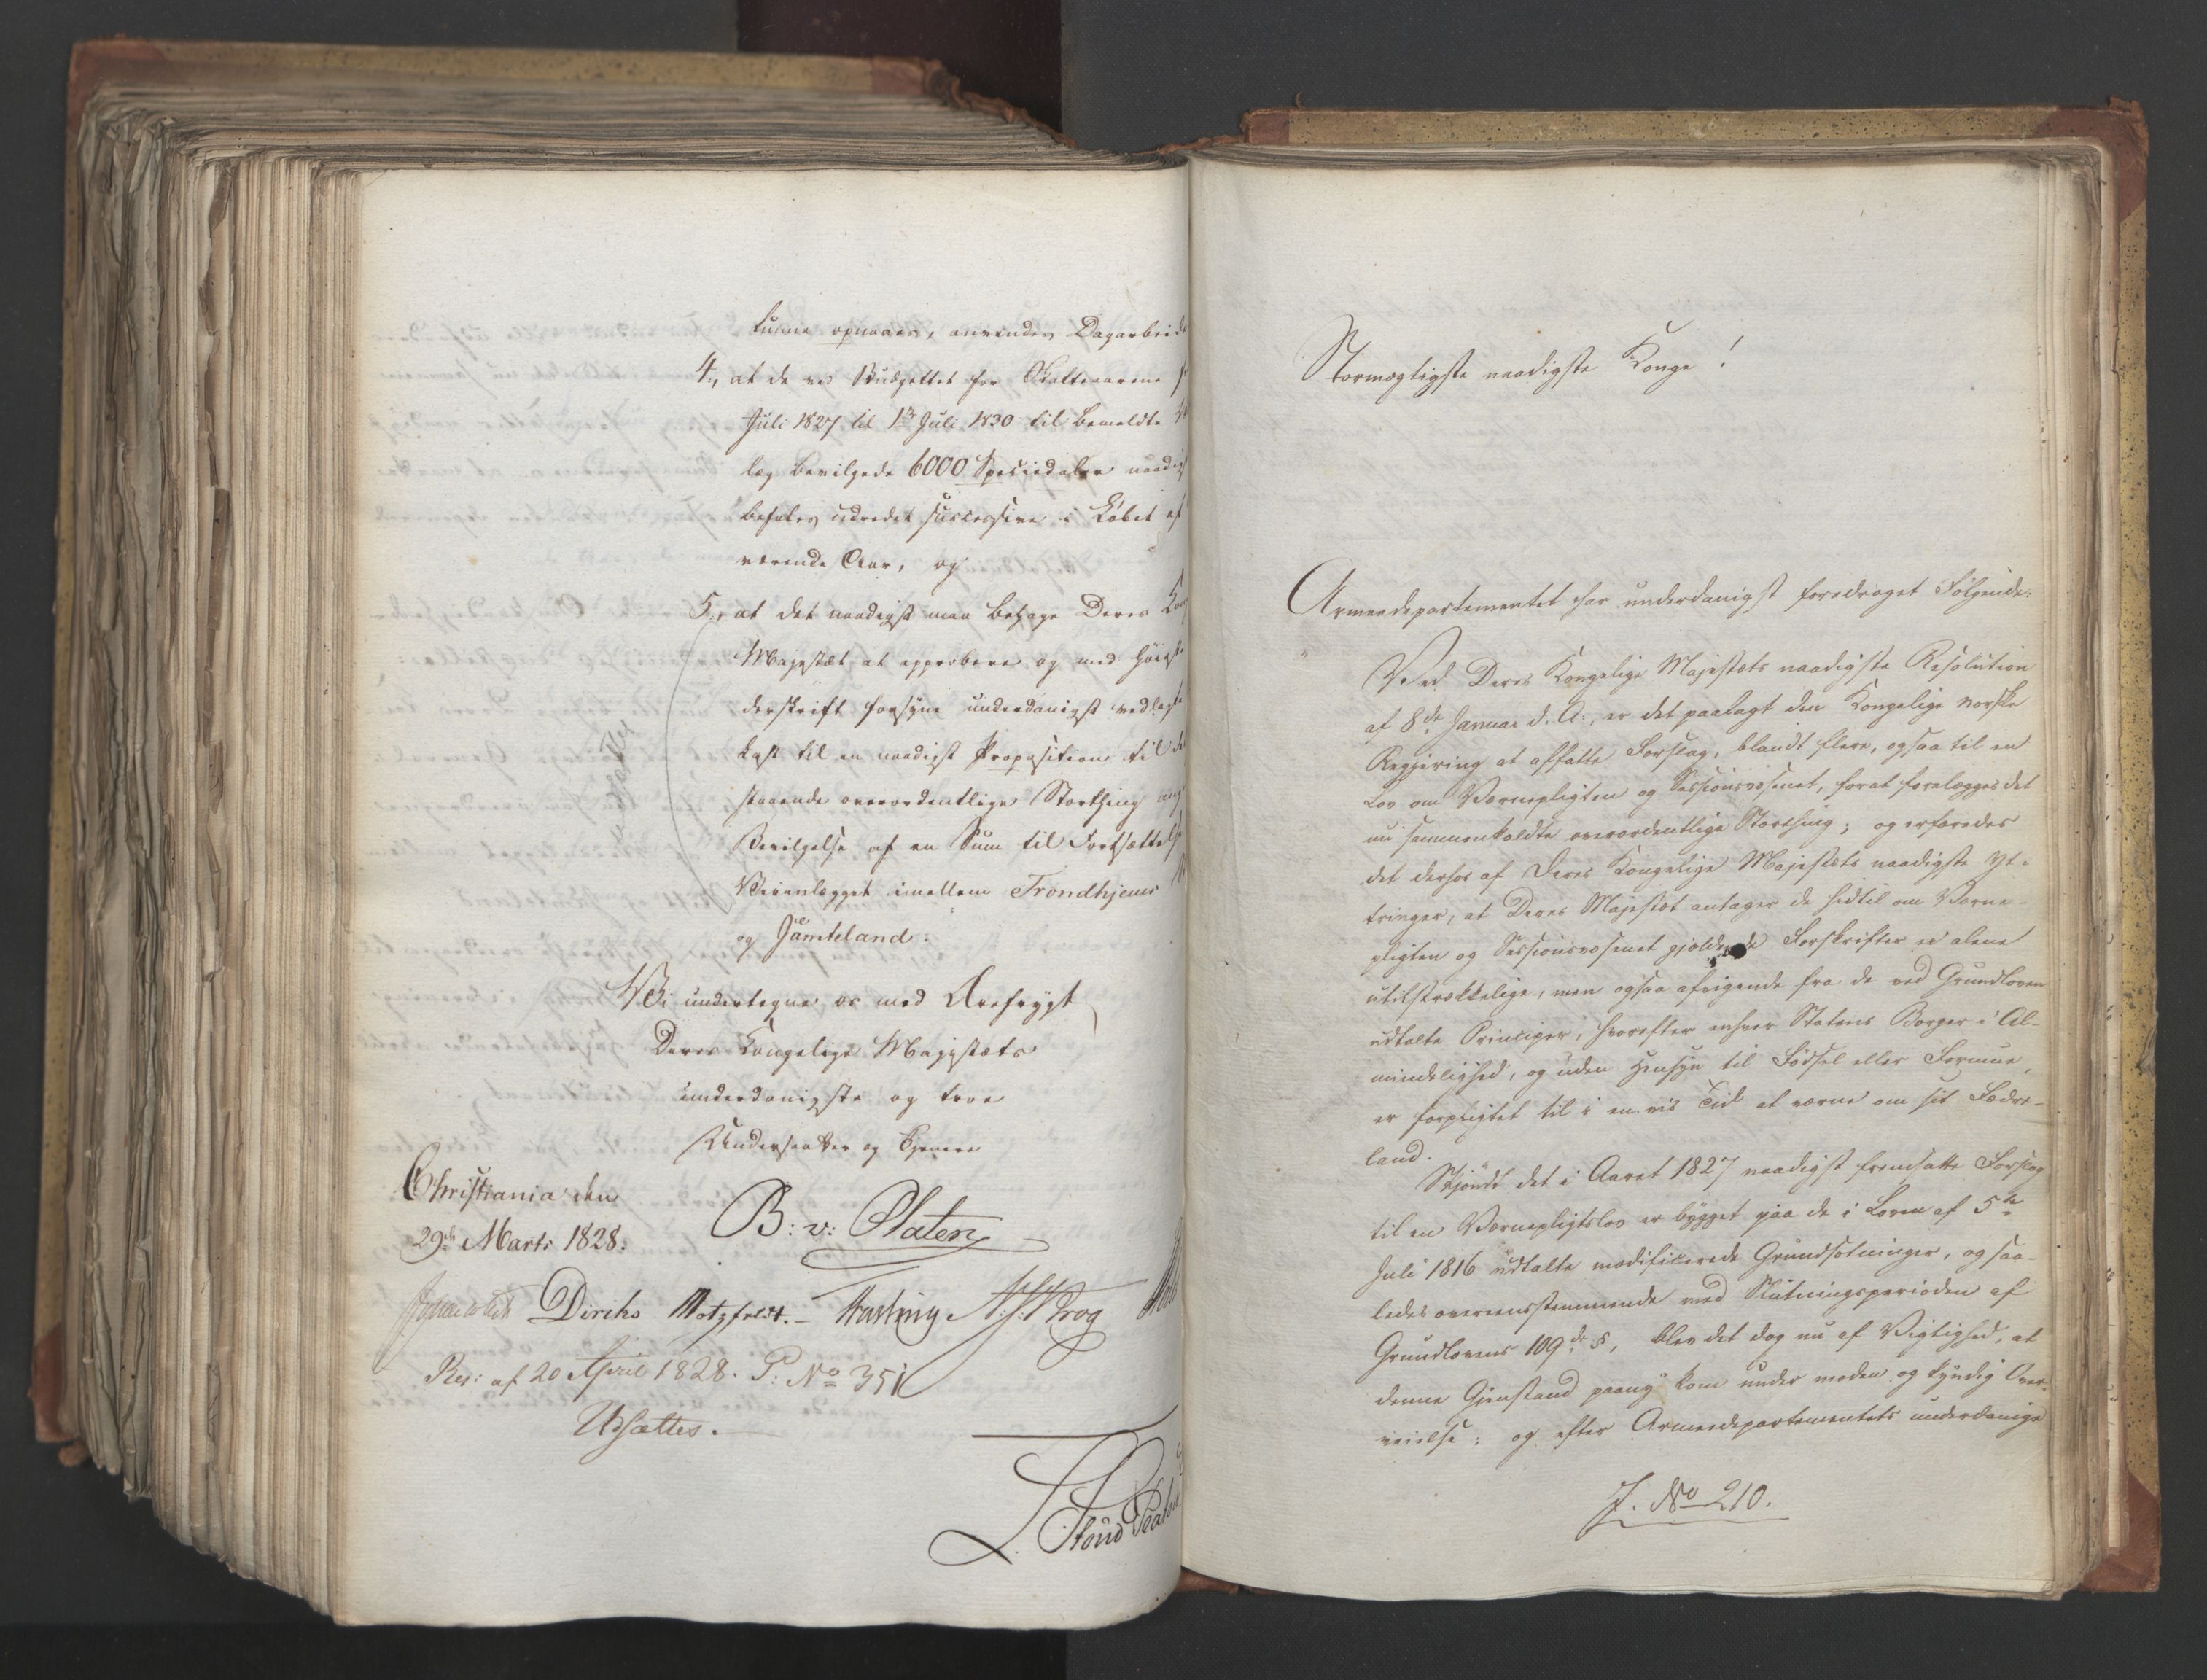 kunne opnaaes, anvendes Dagarbeide
4., at de ved Budgettet for Skatteaarene
Juli 1827 til 1ste Juli 1830 til bemeldte
læg bevilgede 6000 Speciedaler naadigst
befales udredet successive i Løbet af
værende Aar, og
5., at det naadigst maa behage Deres
Majestæt at approbere og med Høieste
derskrift forsyne underdanigst vedlagte
kast til en naadigst Proposition til
staaende overordentlige Storthing
Bevilgelse af en Sum til Fortsættelse
Veianlægget imellem Trondhjems
og Jämteland.
udsættes
Vi undertegne os med Ærefrygt
Deres Kongelige Majestæts
underdanigste og troe
Undersaatter og Tjenere
Christiania den
29de Marts 1828.
B: v: Platen
Diriks Motzfeldt. Fasting. Krog
Res: af 20 April 1828. P: No 351
Udsættes.
Stormægtigste naadigste Konge!
Armeedepartementet har underdanigst foredraget Følgende:
Ved Deres Kongelige Majestæts naadigste Resolution
af 8de Januar d. A., er det paalagt den Kongelige norske
Regjering at affatte Forslag, blandt flere, ogsaa til en
Lov om Værnepligten og Sessionsvæsenet, forat forelægges det
nu sammenkaldte overordentlige Storthing; og erfaredes
det derhos af Deres Kongelige Majestæts naadigste Yt-
tringer, at Deres Majestæt antager de hidtil om Værne-
pligten og Sessionsvæsenet gjældende Forskrifter ei alene
utilstrækkelige, men ogsaa afvigende fra de ved Grundloven
udtalte Principer, hvorefter enhver Statens Borger i Al-
mindelighed, og uden Hensyn til Fødsel eller Formue,
er forpligtet til i en vis Tid at værne om sit Fædre-
land.
Skjøndt det i Aaret 1827 naadigst fremsatte Forslag
til en Værnepligtslov er bygget paa de i Loven af 5te
Juli 1816 udtalte modificerede Grundsætninger, og saa-
ledes overeensstemmende med Slutningsperioden af
Grundlovens 109de §, blev det dog nu af Vigtighed, at
denne Gjenstand paany kom under moden og kyndig Over-
veielse; og efter Armeedepartementets underdanige
J. No 210.